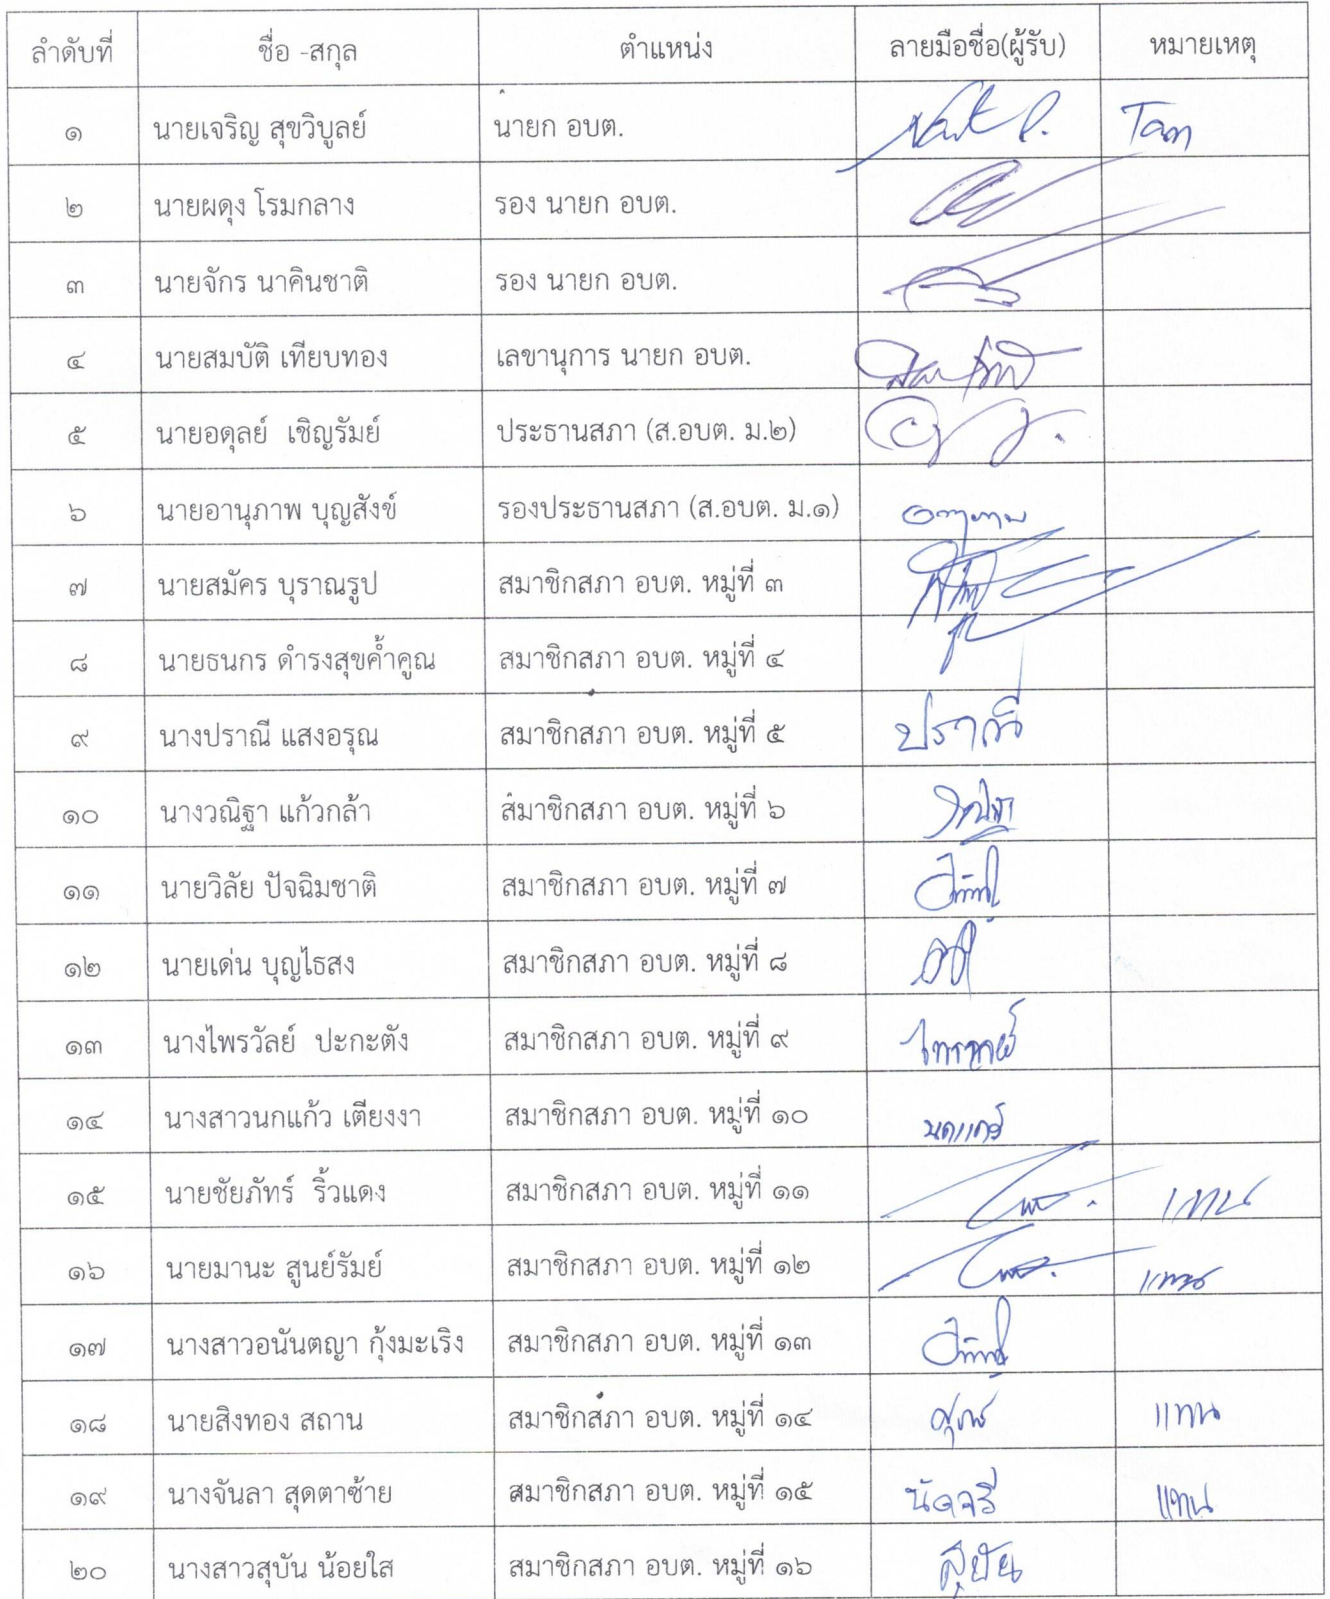 ลำดับที่ ชื่อ -สกุล ตำแหน่ง ลายมือชื่อ(ผู้รับ) หมายเหตุ
๑ นายเจริญ สุขวิบูลย์ นายก อบต.
๒ นายผดุง โรมกลาง รอง นายก อบต.
๓ นายจักร นาคินชาติ รอง นายก อบต.
๔ นายสมบัติ เทียบทอง เลขานุการ นายก อบต.
๕ นายอดุลย์ เชิญรัมย์ ประธานสภา (ส.อบต. ม.๒)
๖ นายอานุภาพ บุญสังข์ รองประธานสภา (ส.อบต. ม.๑)
๗ นายสมัคร บุราณรูป สมาชิกสภา อบต. หมู่ที่ ๓
๘ นายธนกร ดำรงสุขค้ำคูณ สมาชิกสภา อบต. หมู่ที่ ๔
๙ นางปราณี แสงอรุณ สมาชิกสภา อบต. หมู่ที่ ๕ ปราณี
๑๐ นางวณิฐา แก้วกล้า สมาชิกสภา อบต. หมู่ที่ ๖
๑๑ นายวิลัย ปัจฉิมชาติ สมาชิกสภา อบต. หมู่ที่ ๗
๑๒ นายเด่น บุญไธสง สมาชิกสภา อบต. หมู่ที่ ๘
๑๓ นางไพรวัลย์ ปะกะตัง สมาชิกสภา อบต. หมู่ที่ ๙ ไพรวัลย์
๑๔ นางสาวนกแก้ว เตียงงา สมาชิกสภา อบต. หมู่ที่ ๑๐ นกแก้ว
๑๕ นายชัยภัทร์ ริ้วแดง สมาชิกสภา อบต. หมู่ที่ ๑๑ แทน
๑๖ นายมานะ สูนย์รัมย์ สมาชิกสภา อบต. หมู่ที่ ๑๒ แทน
๑๗ นางสาวอนันตญา กุ้งมะเริง สมาชิกสภา อบต. หมู่ที่ ๑๓
๑๘ นายสิงทอง สถาน สมาชิกสภา อบต. หมู่ที่ ๑๔ แทน
๑๙ นางจันลา สุดตาซ้าย สมาชิกสภา อบต. หมู่ที่ ๑๕ นัดจรี แทน
๒๐ นางสาวสุบัน น้อยใส สมาชิกสภา อบต. หมู่ที่ ๑๖ สุบัน